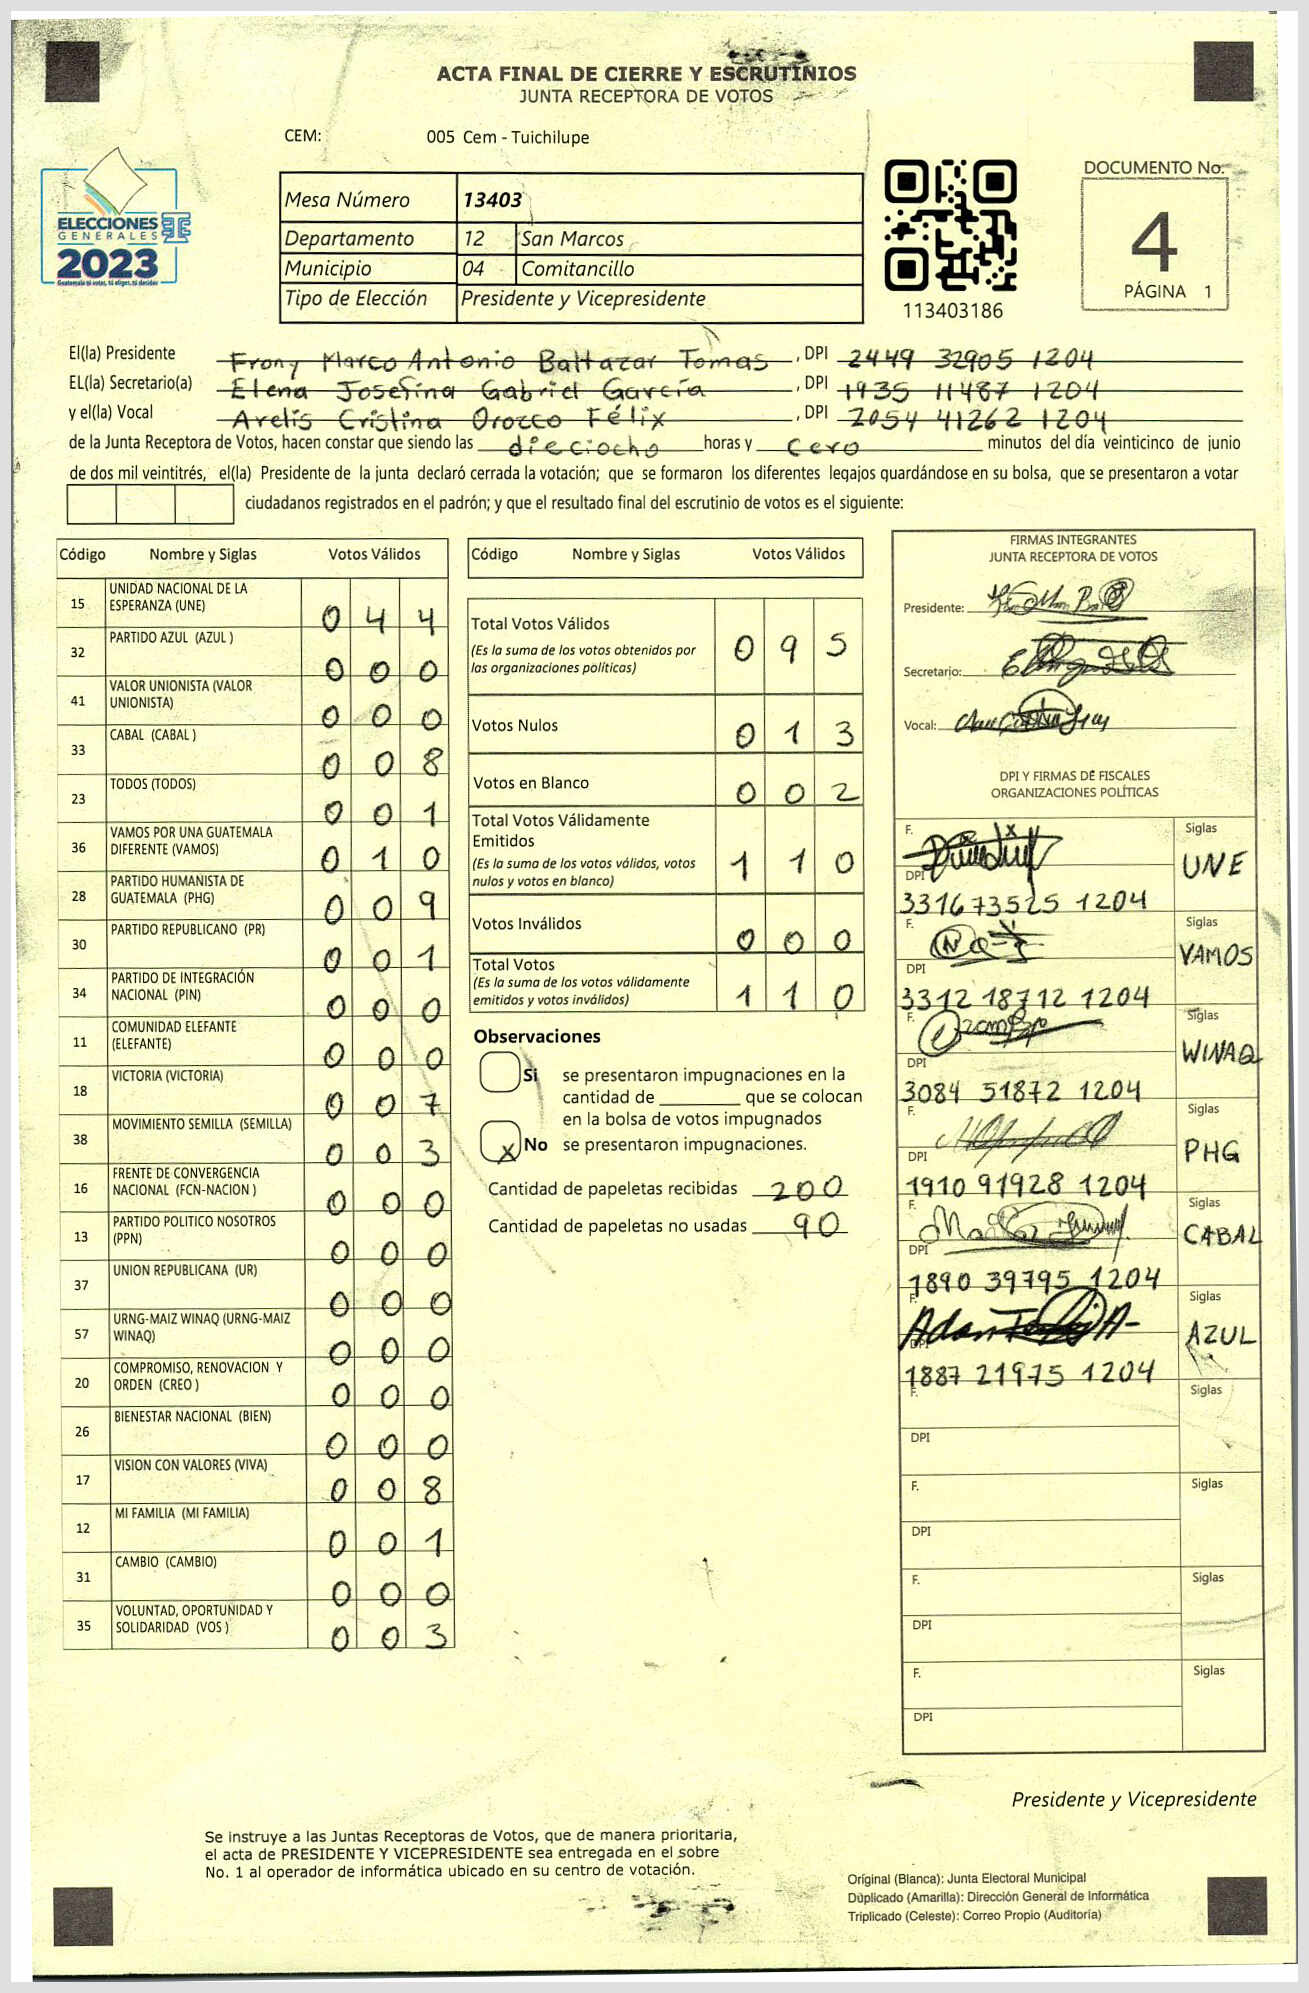 ACTA FINAL DE CIERRE Y ESCRUTINIOS
JUNTA RECEPTORA DE VOTOS
CEM: 005 Cem - Tuichilupe
ELECCIONES
GENERALES
2023
Guatemala tú votas, tú eliges, tú decides
TSE
Mesa Número 13403
Departamento 12 San Marcos
Municipio 04 Comitancillo
Tipo de Elección Presidente y Vicepresidente
113403186
DOCUMENTO No.
4
PÁGINA 1
El(la) Presidente Frony Marco Antonio Baltazar Tomas, DPI 2449 32905 1204
EL(la) Secretario(a) Elena Josefina Gabriel García, DPI 1935 11487 1204
y el(la) Vocal Arelis Cristina Orozco Félix, DPI 2054 41262 1204
de la Junta Receptora de Votos, hacen constar que siendo las dieciocho horas y cero minutos del día veinticinco de junio
de dos mil veintitrés, el(la) Presidente de la junta declaró cerrada la votación; que se formaron los diferentes legajos quardándose en su bolsa, que se presentaron a votar
ciudadanos registrados en el padrón; y que el resultado final del escrutinio de votos es el siguiente:
Código Nombre y Siglas Votos Válidos
15 UNIDAD NACIONAL DE LA ESPERANZA (UNE) 0 4 4
32 PARTIDO AZUL (AZUL ) 0 0 0
41 VALOR UNIONISTA (VALOR UNIONISTA) 0 0 0
33 CABAL (CABAL ) 0 0 8
23 TODOS (TODOS) 0 0 1
36 VAMOS POR UNA GUATEMALA DIFERENTE (VAMOS) 0 1 0
28 PARTIDO HUMANISTA DE GUATEMALA (PHG) 0 0 9
30 PARTIDO REPUBLICANO (PR) 0 0 1
34 PARTIDO DE INTEGRACIÓN NACIONAL (PIN) 0 0 0
11 COMUNIDAD ELEFANTE (ELEFANTE) 0 0 0
18 VICTORIA (VICTORIA) 0 0 7
38 MOVIMIENTO SEMILLA (SEMILLA) 0 0 3
16 FRENTE DE CONVERGENCIA NACIONAL (FCN-NACION ) 0 0 0
13 PARTIDO POLITICO NOSOTROS (PPN) 0 0 0
37 UNION REPUBLICANA (UR) 0 0 0
57 URNG-MAIZ WINAQ (URNG-MAIZ WINAQ) 0 0 0
20 COMPROMISO, RENOVACION Y ORDEN (CREO ) 0 0 0
26 BIENESTAR NACIONAL (BIEN) 0 0 0
17 VISION CON VALORES (VIVA) 0 0 8
12 MI FAMILIA (MI FAMILIA) 0 0 1
31 CAMBIO (CAMBIO) 0 0 0
35 VOLUNTAD, OPORTUNIDAD Y SOLIDARIDAD (VOS ) 0 0 3
Código Nombre y Siglas Votos Válidos
Total Votos Válidos 0 9 5
(Es la suma de los votos obtenidos por
las organizaciones políticas)
Votos Nulos 0 1 3
Votos en Blanco 0 0 2
Total Votos Válidamente
Emitidos 1 1 0
(Es la suma de los votos válidos, votos
nulos y votos en blanco)
Votos Inválidos 0 0 0
Total Votos
(Es la suma de los votos válidamente
emitidos y votos inválidos) 1 1 0
Observaciones
Si se presentaron impugnaciones en la
cantidad de ________ que se colocan
en la bolsa de votos impugnados
x No se presentaron impugnaciones.
Cantidad de papeletas recibidas 200
Cantidad de papeletas no usadas 90
FIRMAS INTEGRANTES
JUNTA RECEPTORA DE VOTOS
Presidente:
Secretario:
Vocal:
DPI Y FIRMAS DE FISCALES
ORGANIZACIONES POLÍTICAS
F. Siglas UNE
DPI 3316 73525 1204
F. Siglas VAMOS
DPI 3312 18712 1204
F. Siglas WINAQ
DPI 3084 51872 1204
F. Siglas PHG
DPI 1910 91928 1204
F. Siglas CABAL
DPI 1890 39795 1204
F. Siglas AZUL
DPI 1887 21975 1204
F. Siglas
DPI
F. Siglas
DPI
F. Siglas
DPI
F. Siglas
DPI
Presidente y Vicepresidente
Se instruye a las Juntas Receptoras de Votos, que de manera prioritaria,
el acta de PRESIDENTE Y VICEPRESIDENTE sea entregada en el sobre
No. 1 al operador de informática ubicado en su centro de votación.
Original (Blanca): Junta Electoral Municipal
Dúplicado (Amarilla): Dirección General de Informática
Triplicado (Celeste): Correo Propio (Auditoría)